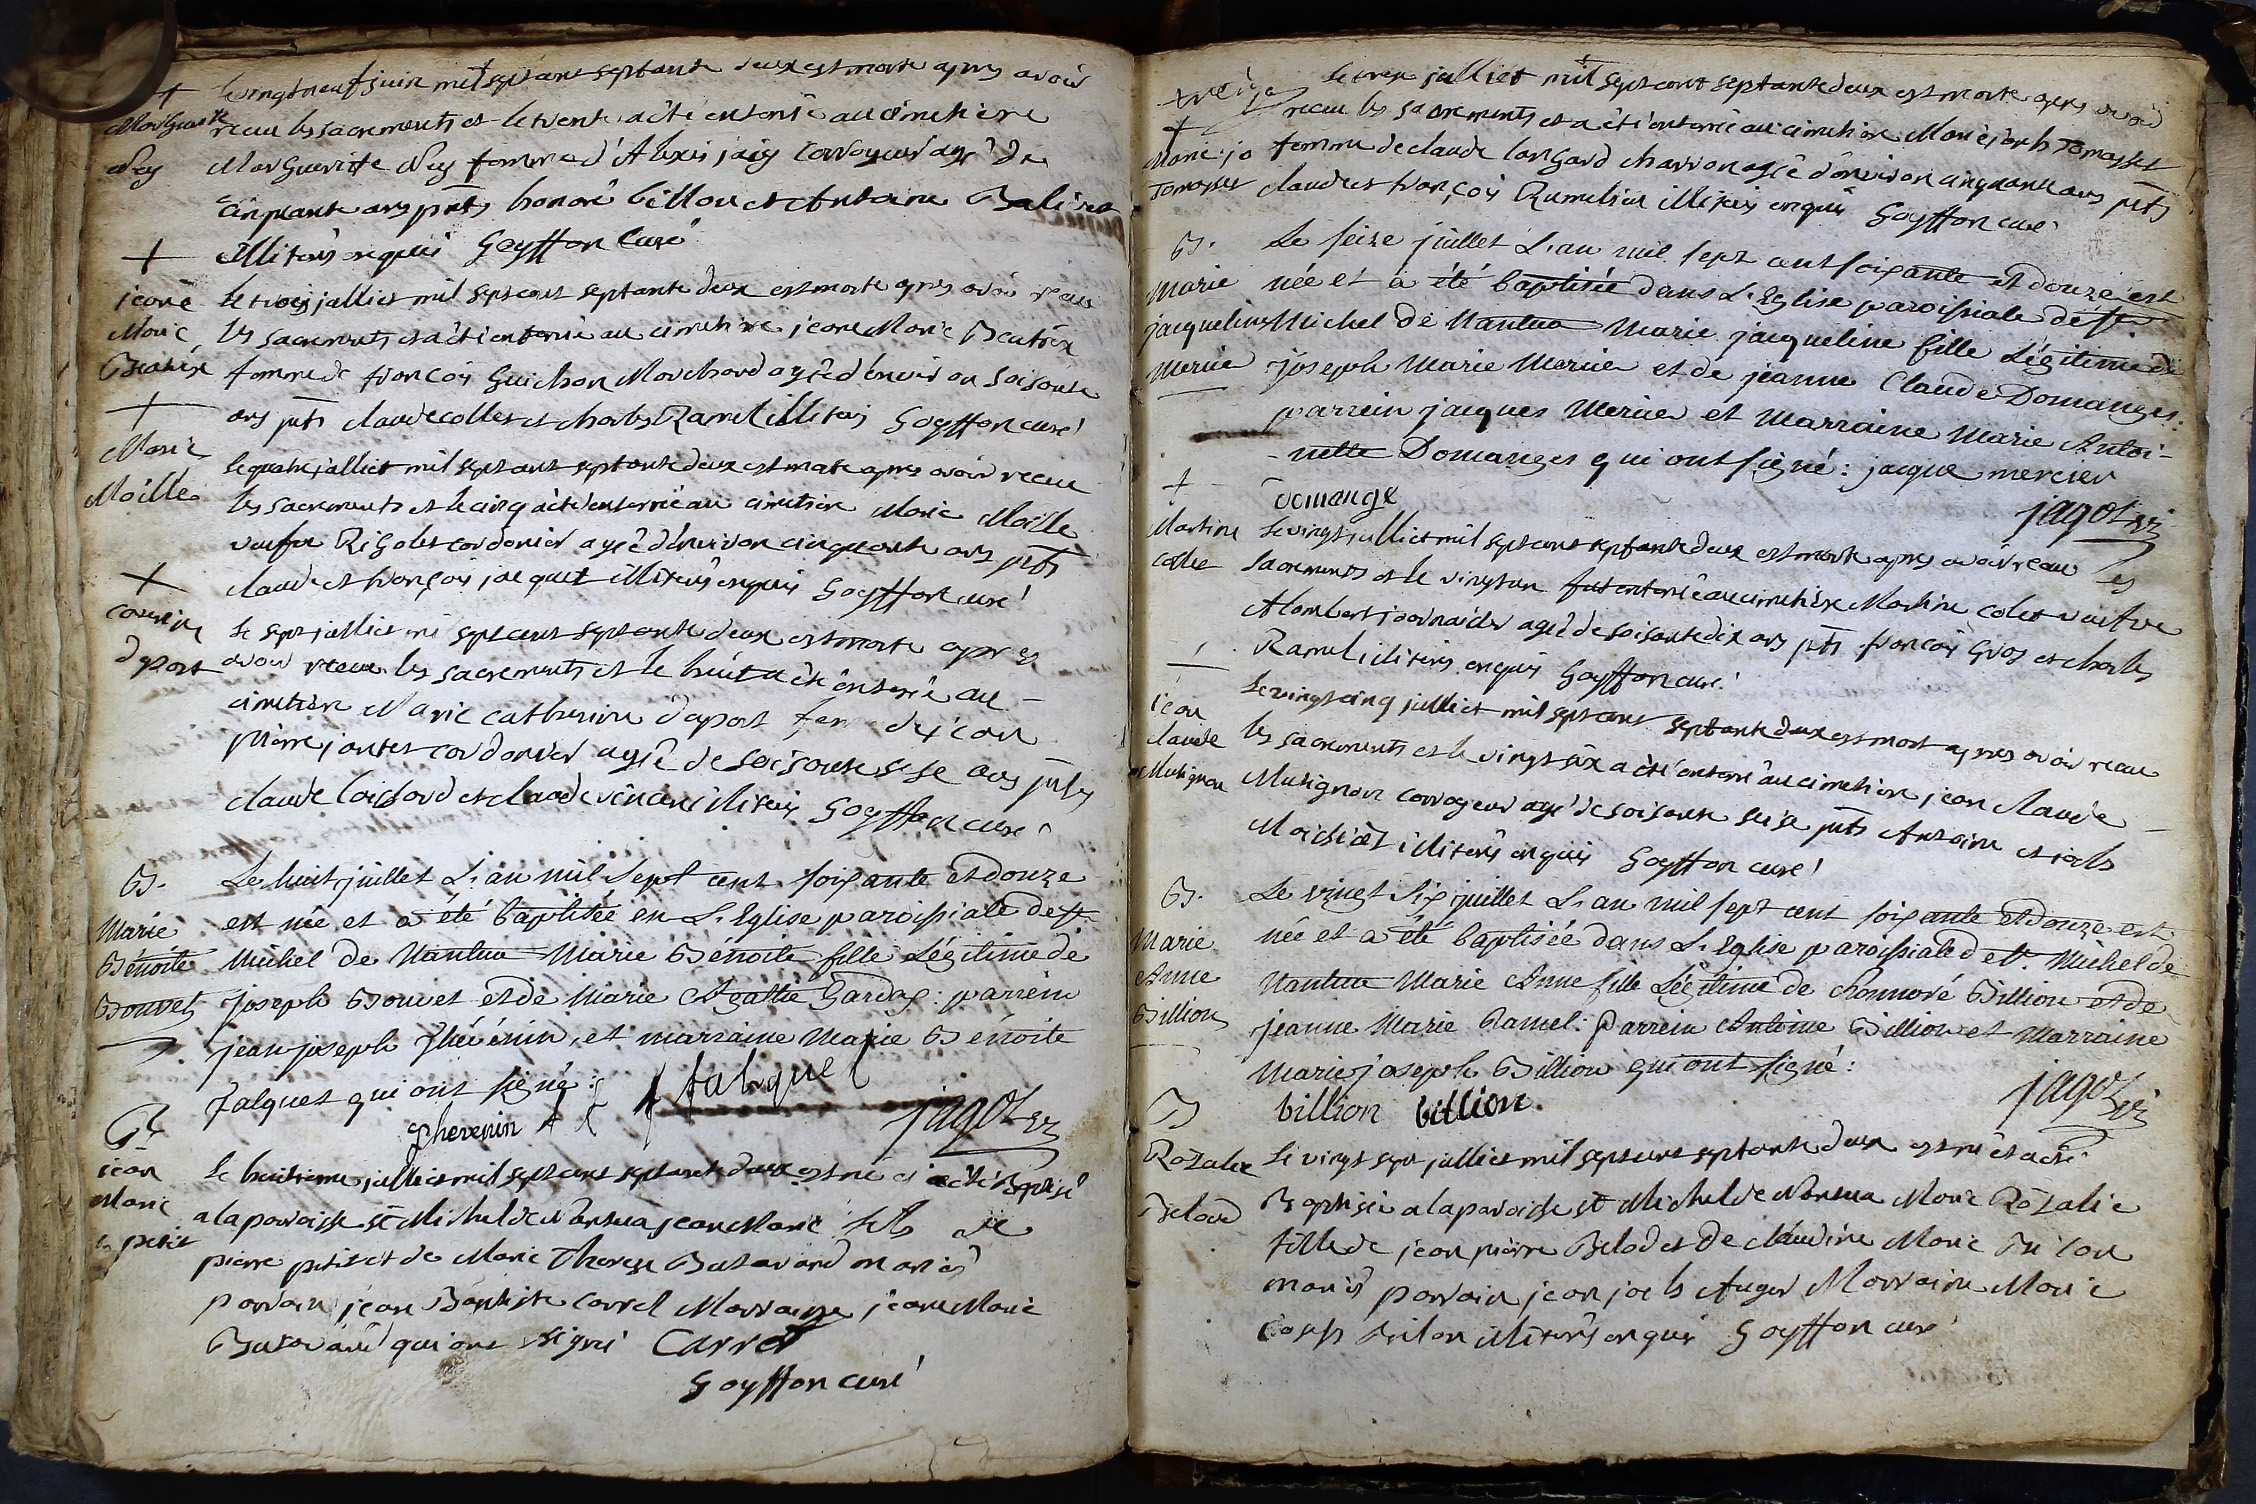 +
Marguerite
Ney
le vingt neuf juin mil sept cent septante deux est morte apres avoir
recue les sacrements et le trente a été enterré au cimetiere
Marguerite Ney femme d'Alexis jaig corroyeur agé de
cinquante ans pnts honoré billion et Antoine
illiterés enquis Goyffon Curé
+
jeane
Marie
Beatrix
le trois julliet mil sept cent septante deux est morte apres avoir recue
les sacrements et a été enterrée au cimetiere jeane Marie Beatrix
femme de françois Guichon Marchand agée d'environ soisante
ans pnts claude collet et charles Ramel illiterés Goyffon curé
+
Marie
Maille
le quatre julliet mil sept cent septante deux est morte apres avoir recue
les sacrements et le cinq a été enterrée au cimetiere Marie Maille
veufve Rigolet cordonier agée d'environ cinquante ans pnts
claude et françois jacquet illiterés enquis Goyffon curé
+
caterine
deport
le sept julliet mil sept cent septante deux est morte apres
avoir recue les sacrements et le huit a été enterrée au
cimetiere Marie catherine deport fem de jean
pierre jantet cordonier agée de soisante se ans pnts
claude et claude illiterés Goyffon curé
B.
Marie
Benoite
Bouvet
Le huit juillet L'an mil sept cent soixante et douze
est née et a été baptisée en L'Eglise paroissiale de st
Michel de Nantua Marie Bénoite fille Légitime de
joseph Bouvet et de Marie Agathe Gardas: parrein
jean joseph Thévénin, et marraine Marie Bénoite
Jalquet qui ont signé:
thevenin jalquet
jagot vi
B
jean
Marie
petit
le huitieme julliet mil sept cent septante deux est né et a été Baptisé
a la paroisse st Michel de Nantua jean Marie fils de
pierre petit et de Marie Therese Butavand mariés
parrain jean Baptiste carret Marraine jeane Marie
Butavand qui ont signé Carret
Goyffon curé
+
Marie jo
Tomasset
Le treize julliet mil sept cent septante deux est morte apres avoir
recue les sacrements et a été enterrée au cimetiere Marie joseph Tomasset
femme de claude langard charron agée d'environ cinquante ans pnts
claude et françois Rumelin illiterés enquis Goyffon curé
B.
Marie
jacqueline
Mercier
Le seize juillet L'an mil sept cent soixante et douze est
née et a été baptisée dans L'Eglise paroissiale de st
Michel de Nantua Marie jacqueline fille Légitime de
joseph Marie Mercier et de jeanne Claude Domanges:
parrein jacques Mercier et Marraine Marie Antoi-
-nette Domanges qui ont signé: jacque mercier
Domange
jagot vi
+
Martine
colet
le vingt julliet mil sept cent septante deux est morte apres avoir recue les
sacrements et le vingt un fut enterrée au cimetiere Martine colet veufve
Alombert journalier agée de soisante dix ans pnts françois Gros et charles
Ramel illiterés enquis Goyffon curé
jean
claude
Mutignon
le vingt cinq julliet mil sept cent septante deux est mort apres avoir recue
les sacrements et le vingt six a été enterré au cimetiere jean claude
Mutignon corroyeur agé de soisante seise pnts Antoine et
illiterés enquis Goyffon curé
B.
Marie
Anne
Billion
Le vingt six juillet L'an mil sept cent soixante et douze est
née et a été baptisée dans L'Eglise paroissiale de st. Michel de
Nantua Marie Anne fille Légitime de honnoré Billion et de
jeanne Marie Ramel: Parrein Antoine Billion et Marraine
Marie joseph Billion qui ont signé:
billion billion.
jagot vi
B
Rozalie
Belod
le vingt sept julliet mil sept cent septante deux est né et a été
Baptisée a la paroisse st Michel de Nantua Marie Rozalie
fille de jean pierre Belod et de claudine Marie
mariés parrain jean Auger Marraine Marie
joseph illiterés enquis Goyffon curé